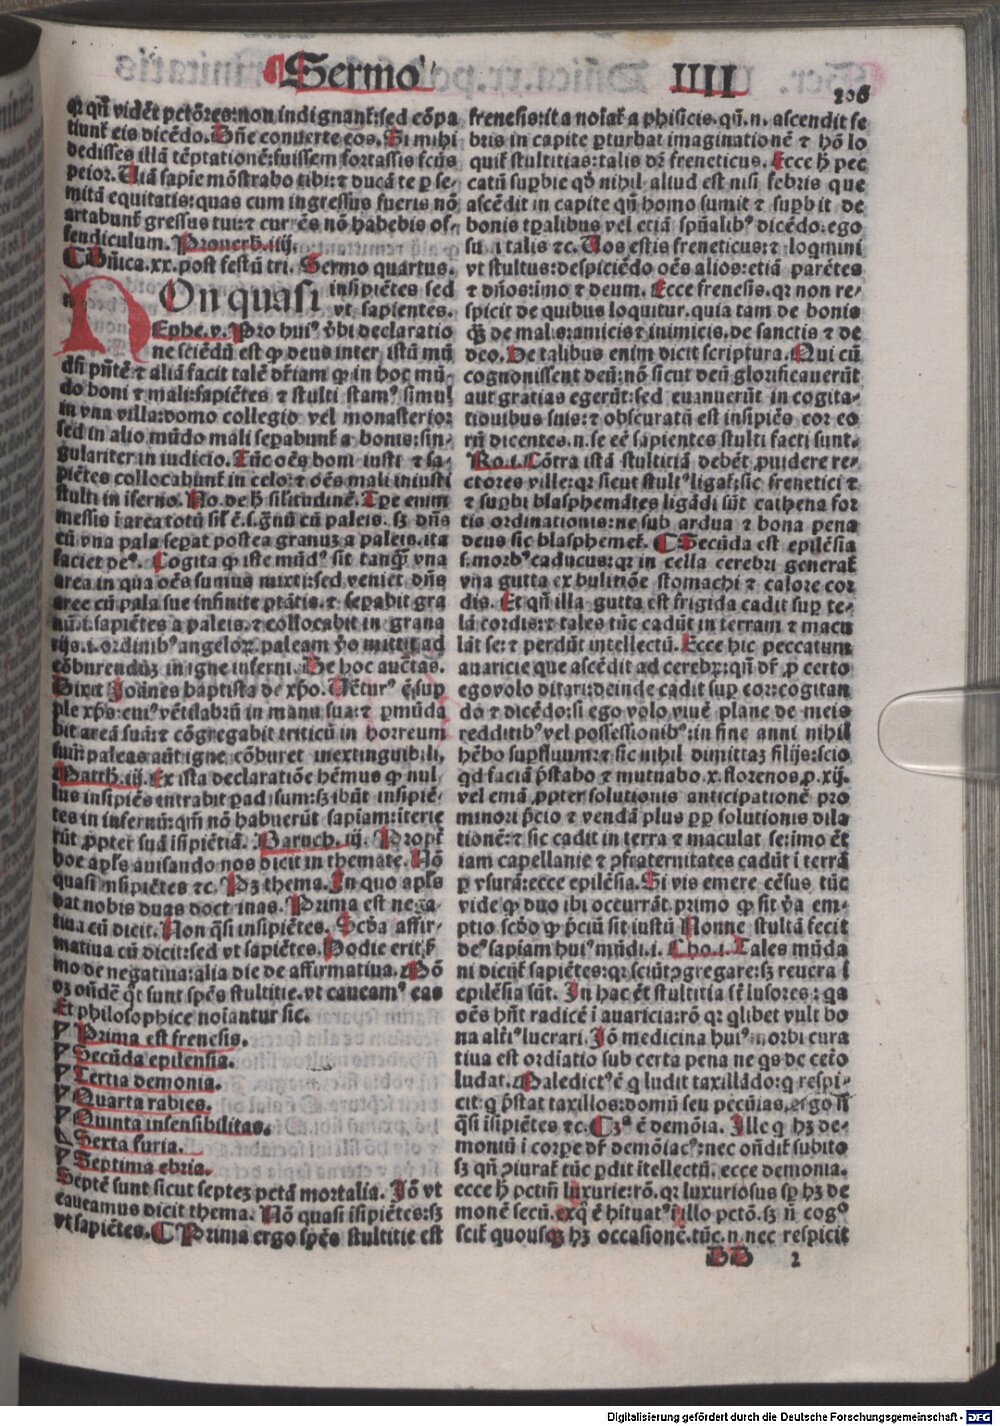 Sermo IIII
206
qr qñ vidẽt pctõres: non indignant᷑: sed cõpa
tiunt᷑ eis dicẽdo. Dñe conuerte eos. Si mihi
dedisses illã tẽptationẽ: fuissem fortassis scũs
peior. Uiã sapie mõstrabo tibi: ⁊ ducã te ꝑ se⸗
mitã equitatis: quas cum ingressus fueris nõ
artabunt᷑ gressus tui: ⁊ curẽs nõ habebis of⸗
fendiculum. Prouerb. iiij.
Dñica. xx. post festũ tri. Sermo quartus.
NOn quasi insipiẽtes sed
vt sapientes.
Ephe. v. Pro huiꝰ ꝟbi declaratio
ne sciẽdũ est ꝙ deus inter istũ mũ
dũ pñtẽ ⁊ aliã facit talẽ dr̃iam ꝙ in hoc mũ⸗
do boni ⁊ mali: sapiẽtes ⁊ stulti stamꝰ simul
in vna villa: domo collegio vel monasterio:
sed in alio mũdo mali seꝑabunt᷑ a bonis: sin⸗
gulariter in iudicio. Tũc oẽs boni iusti ⁊ sa⸗
piẽtes collocabunt᷑ in celo: ⁊ oẽs mali iniusti
stulti in iferno. No. de h̃ sil̃itudinẽ. Tꝑe enim
messis ĩ area totũ sil̃ ẽ. s. g̃nũ cũ paleis. sꝫ dñs
cũ vna pala seꝑat postea granuꝫ a paleis. ita
faciet deꝰ. Cogita ꝙ iste mũdꝰ sit tanꝗ̃ vna
area in qua oẽs sumus mixti: sed veniet dñs
aree cũ pala sue infinite ptãtis. ⁊ seꝑabit gra
nũ. i. sapiẽtes a paleis. ⁊ collocabit in grana
rijs. i. ordinibꝰ angeloꝝ. paleam ꝟo mittit ad
cõburenduꝫ in igne inferni. De hoc auctas.
Dixit Joãnes baptista de xp̃o. Uẽturꝰ ẽ sup
ple xp̃s: cuiꝰ vẽtilabrũ in manu sua: ⁊ ꝑmũda
bit areã suã: ⁊ cõgregabit triticũ in horreum
suũ: paleas aũt igne cõburet inextinguibili.
Matth. iij. Ex ista declaratiõe hẽmus ꝙ nul⸗
lus insipiẽs intrabit ꝑadisum: sꝫ ibũt insipiẽ⸗
tes in infernũ: qm̃ nõ habuerũt sapiam: iterie
rũt ꝓpter suã isipiẽtiã. Baruch. iij. Propt̃
hoc apl̃s auisando nos dicit in themate. Nõ
quasi insipiẽtes ⁊c. Pꝫ thema. In quo apl̃s
dat nobis duas doctrinas. Prima est nega⸗
tiua cũ dicit. Non q̃si insipiẽtes. Scd̃a affir⸗
matiua cũ dicit: sed vt sapiẽtes. Hodie erit p̃
mo de negatiua: alia die de affirmatiua. Mõ
dꝫ oñdẽ q̃t sunt spẽs stultitie. vt caueamꝰ eas
Et philosophice noĩantur sic.
Prima est frenesis.
Secũda epilensia.
Tertia demonia.
Quarta rabies.
Quinta insensibilitas.
Sexta furia.
Septima ebria.
Septẽ sunt sicut septeꝫ pctã mortalia. Jõ vt
caueamus dicit thema. Nõ quasi isipiẽtes: sꝫ
vt sapiẽtes. Prima ergo spẽs stultitie est
frenesis: ita noĩat᷑ a phisicis. qñ. n. ascendit fe
bris in capite ꝑturbat imaginationẽ ⁊ hõ lo
quit᷑ stultitias: talis dr̃ freneticus. Ecce h̃ pec
catũ supbie qd̃ nihil aliud est nisi febris que
ascẽdit in capite qñ homo sumit ⁊ supbit de
bonis tꝑalibus vel etiã spũalibꝰ dicẽdo: ego
sum talis ⁊c. Uos estis freneticus: ⁊ loqmini
vt stultus: despiciẽdo oẽs alios: etiã parẽtes
⁊ dños: imo ⁊ deum. Ecce frenesis. qr non re⸗
spicit de quibus loquitur. quia tam de bonis
ꝗ̃ de malis: amicis ⁊ inimicis. de sanctis ⁊ de
deo. De talibus enim dicit scriptura. Qui cũ
cognouissent deũ: nõ sicut deũ glorificauerũt
aut gratias egerũt: sed euanuerũt in cogita⸗
tionibus suis: ⁊ obscuratũ est insipiẽs cor eo
rũ dicentes. n. se eẽ sapientes stulti facti sunt.
Ro. i. Cõtra istã stultitiã debẽt ꝓuidere re⸗
ctores ville: qr sicut stultꝰ ligat᷑: sic frenetici ⁊
⁊ supbi blasphemãtes ligãdi sũt cathena for
tis ordinationis: ne sub ardua ⁊ bona pena
deus sic blasphemet᷑. Secũda est epilẽsia
s. morbꝰ caducus: qr in cella cerebri generat᷑
vna gutta ex bulitiõe stomachi ⁊ calore cor
dis. Et qñ illa gutta est frigida cadit sup te⸗
lã cordis: ⁊ tales tũc cadũt in terram ⁊ macu
lãt se: ⁊ perdũt intellectũ. Ecce hic peccatum
auaricie que ascẽdit ad cerebꝝ: qñ dr̃ ꝓ certo
ego volo ditari: deinde cadit sup cor: cogitan
do ⁊ dicẽdo: si ego volo viuẽ plane de meis
redditibꝰ vel possessionibꝰ: in fine anni nihil
hẽbo supfluum: ⁊ sic nihil dimittaꝫ filijs: scio
qd faciã p̃stabo ⁊ mutuabo. x. florenos ꝓ. xij.
vel emã ꝓpter solutionis anticipationẽ pro
minori p̃cio ⁊ vendã plus ꝓp̃ solutionis dila
tionẽ: ⁊ sic cadit in terra ⁊ maculat se: imo ẽt
iam capellanie ⁊ ꝯfraternitates cadũt ĩ terrã
ꝑ vsurã: ecce epilẽsia. Si vis emere cẽsus tũc
vide ꝙ duo ibi occurrãt. primo ꝙ sit ꝟa em⸗
ptio scd̃o ꝙ p̃ciũ sit iustũ Nonne stultã fecit
deꝰ sapiam huiꝰ mũdi. i. Cho. i. Tales mũda
ni dicũt᷑ sapiẽtes: qr sciũt ꝯgregare: sꝫ reuera ĩ
epilẽsia sũt. In hac ẽt stultitia sũt lusores: qa
oẽs hñt radicẽ ĩ auaricia: rõ qr qlibet vult bo
na alt̃iꝰ lucrari. Jõ medicina huiꝰ morbi cura
tiua est ordiatio sub certa pena ne qs de cet̃o
ludat. Maledictꝰ ẽ q ludit taxillãdo: q respi⸗
cit: q p̃stat taxillos: domũ seu pecũias. ergo ñ
q̃si isipiẽtes ⁊c. Cꝫᵃ ẽ demõia. Ille q hꝫ de⸗
moniũ i corpe dr̃ demõiacꝰ: nec oñdit᷑ subito
sꝫ qñ ꝯiurat᷑ tũc ꝑdit itellectũ. ecce demonia.
ecce h̃ pctm̃ luxurie: rõ. qr luxuriosus sp̃ hꝫ de
monẽ secũ. exq̃ ẽ hituatꝰ i illo pctõ. sꝫ ñ cogꝰ
scit᷑ quousꝗ hꝫ occasionẽ. tũc. n. nec respicit
BB 2
Digitalisierung gefördert durch die Deutsche Forschungsgemeinschaft - DFG